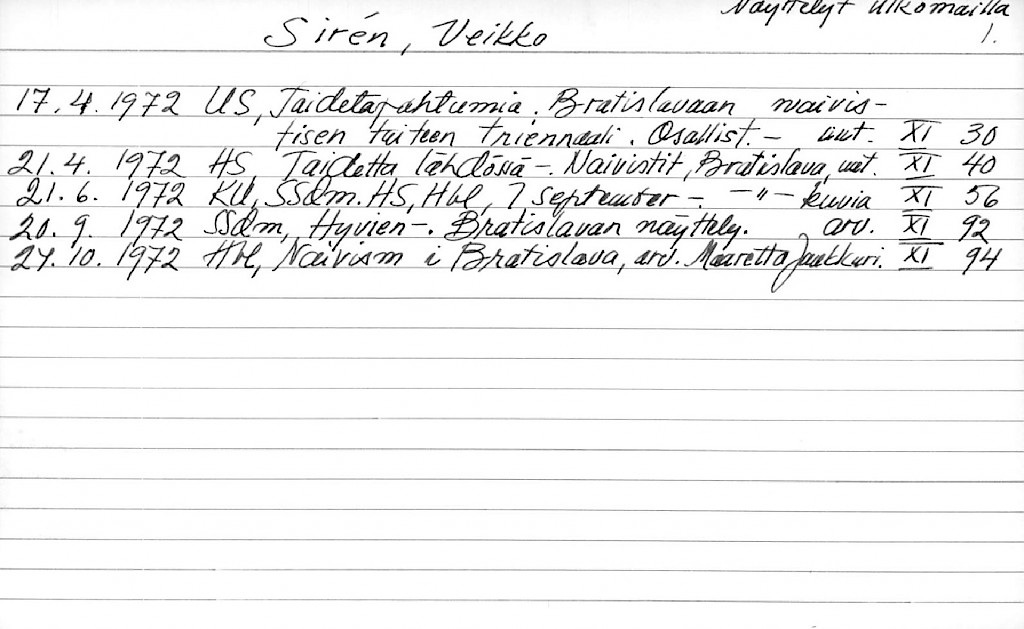 Näyttelyt ulkomailla
Sirén, Veikko 1.
17.4.1972 US, Taidetapahtumia. Bratislavaan naivis-
tisen taiteen triennaali. Osallist. – uut. XI 30
21.4. 1972 HS, Taidetta lähdössä –. Naivistit, Bratislava, uut. XI 40
21.6. 1972 KU, SSdm. HS, Hbl, 7 september –. –"– kuvia XI 56
20.9. 1972 SSdm, Hyvien –. Bratislavan näyttely. arv. XI 92
24.10.1972 Hbl, Naivism i Bratislava, arv. Maaretta Jaukkuri. XI 94